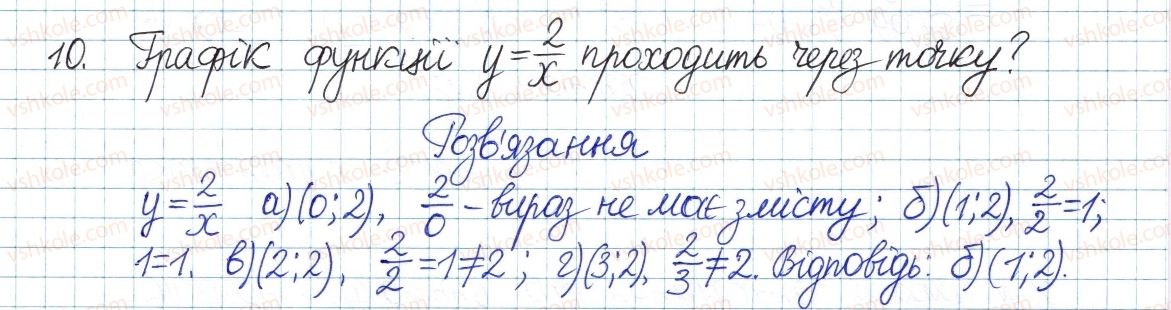 10. Графік функції y = 2/x проходить через точку?
Розв'язання
y = 2/x а) (0; 2), 2/0 - вираз не має змісту; б) (1; 2), 2/2 = 1;
1=1. в) (2; 2), 2/2 = 1 ≠ 2; г) (3; 2), 2/3 ≠ 2. Відповідь: б) (1; 2).